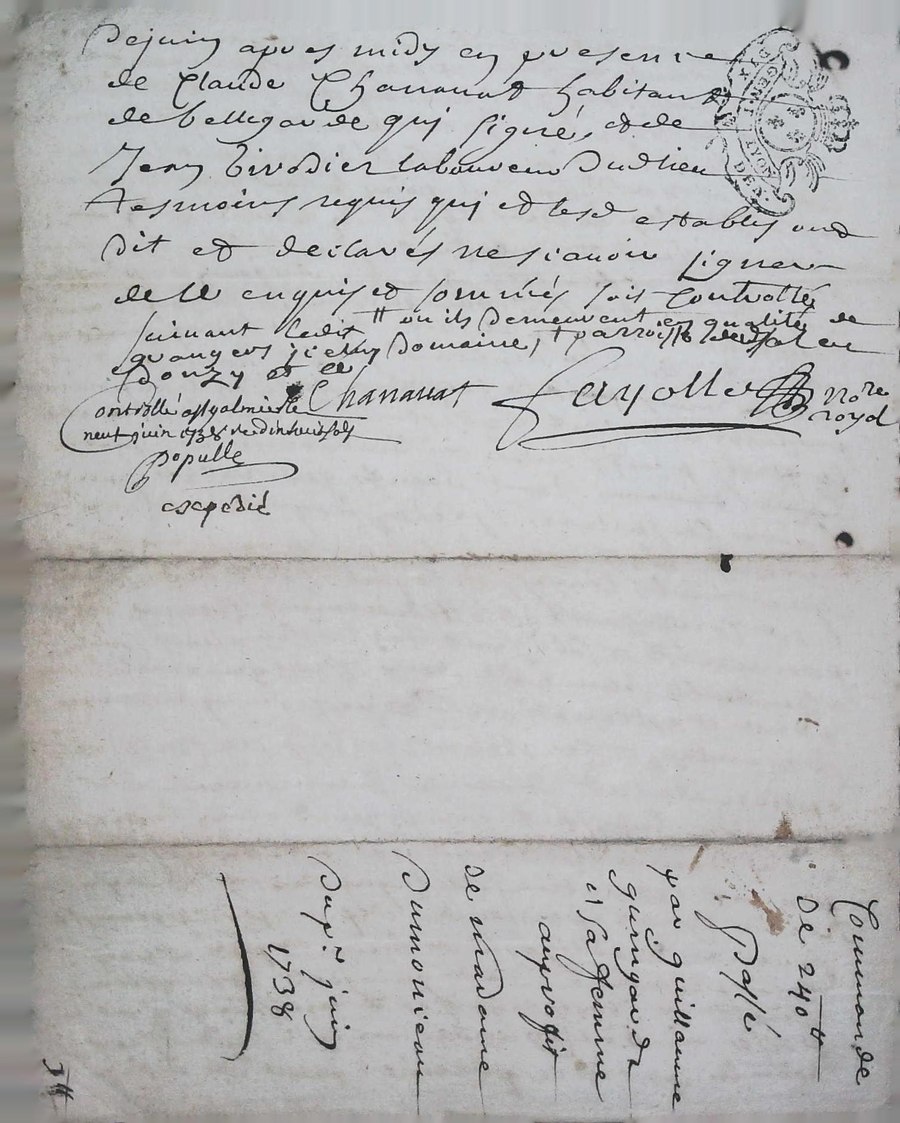 de juin apres midy en presence
de Claude Chanauat habitant
de bellegarde qui signé, et de
Jean laboureur dudit lieu
tesmoins requis qui et lesd establis ont
dit et declarés ne sçauoir signer
de ce enquis et sommés soit controllé
suiuant ledit # ou ils demeurent en qualité de
grangers domaine, parroisse de
donzy et ce
Chanauat
fayolle
no.re
royal
Controllé a St galmier le
neuf juin 1738 douze sols
populle
expedié
DIX
I. GEN.
LYON
Commande
de 240 tt
passé
par guillaume
guingard
et sa femme
au profit
de madame
dumonceau
du p.r juin
1738